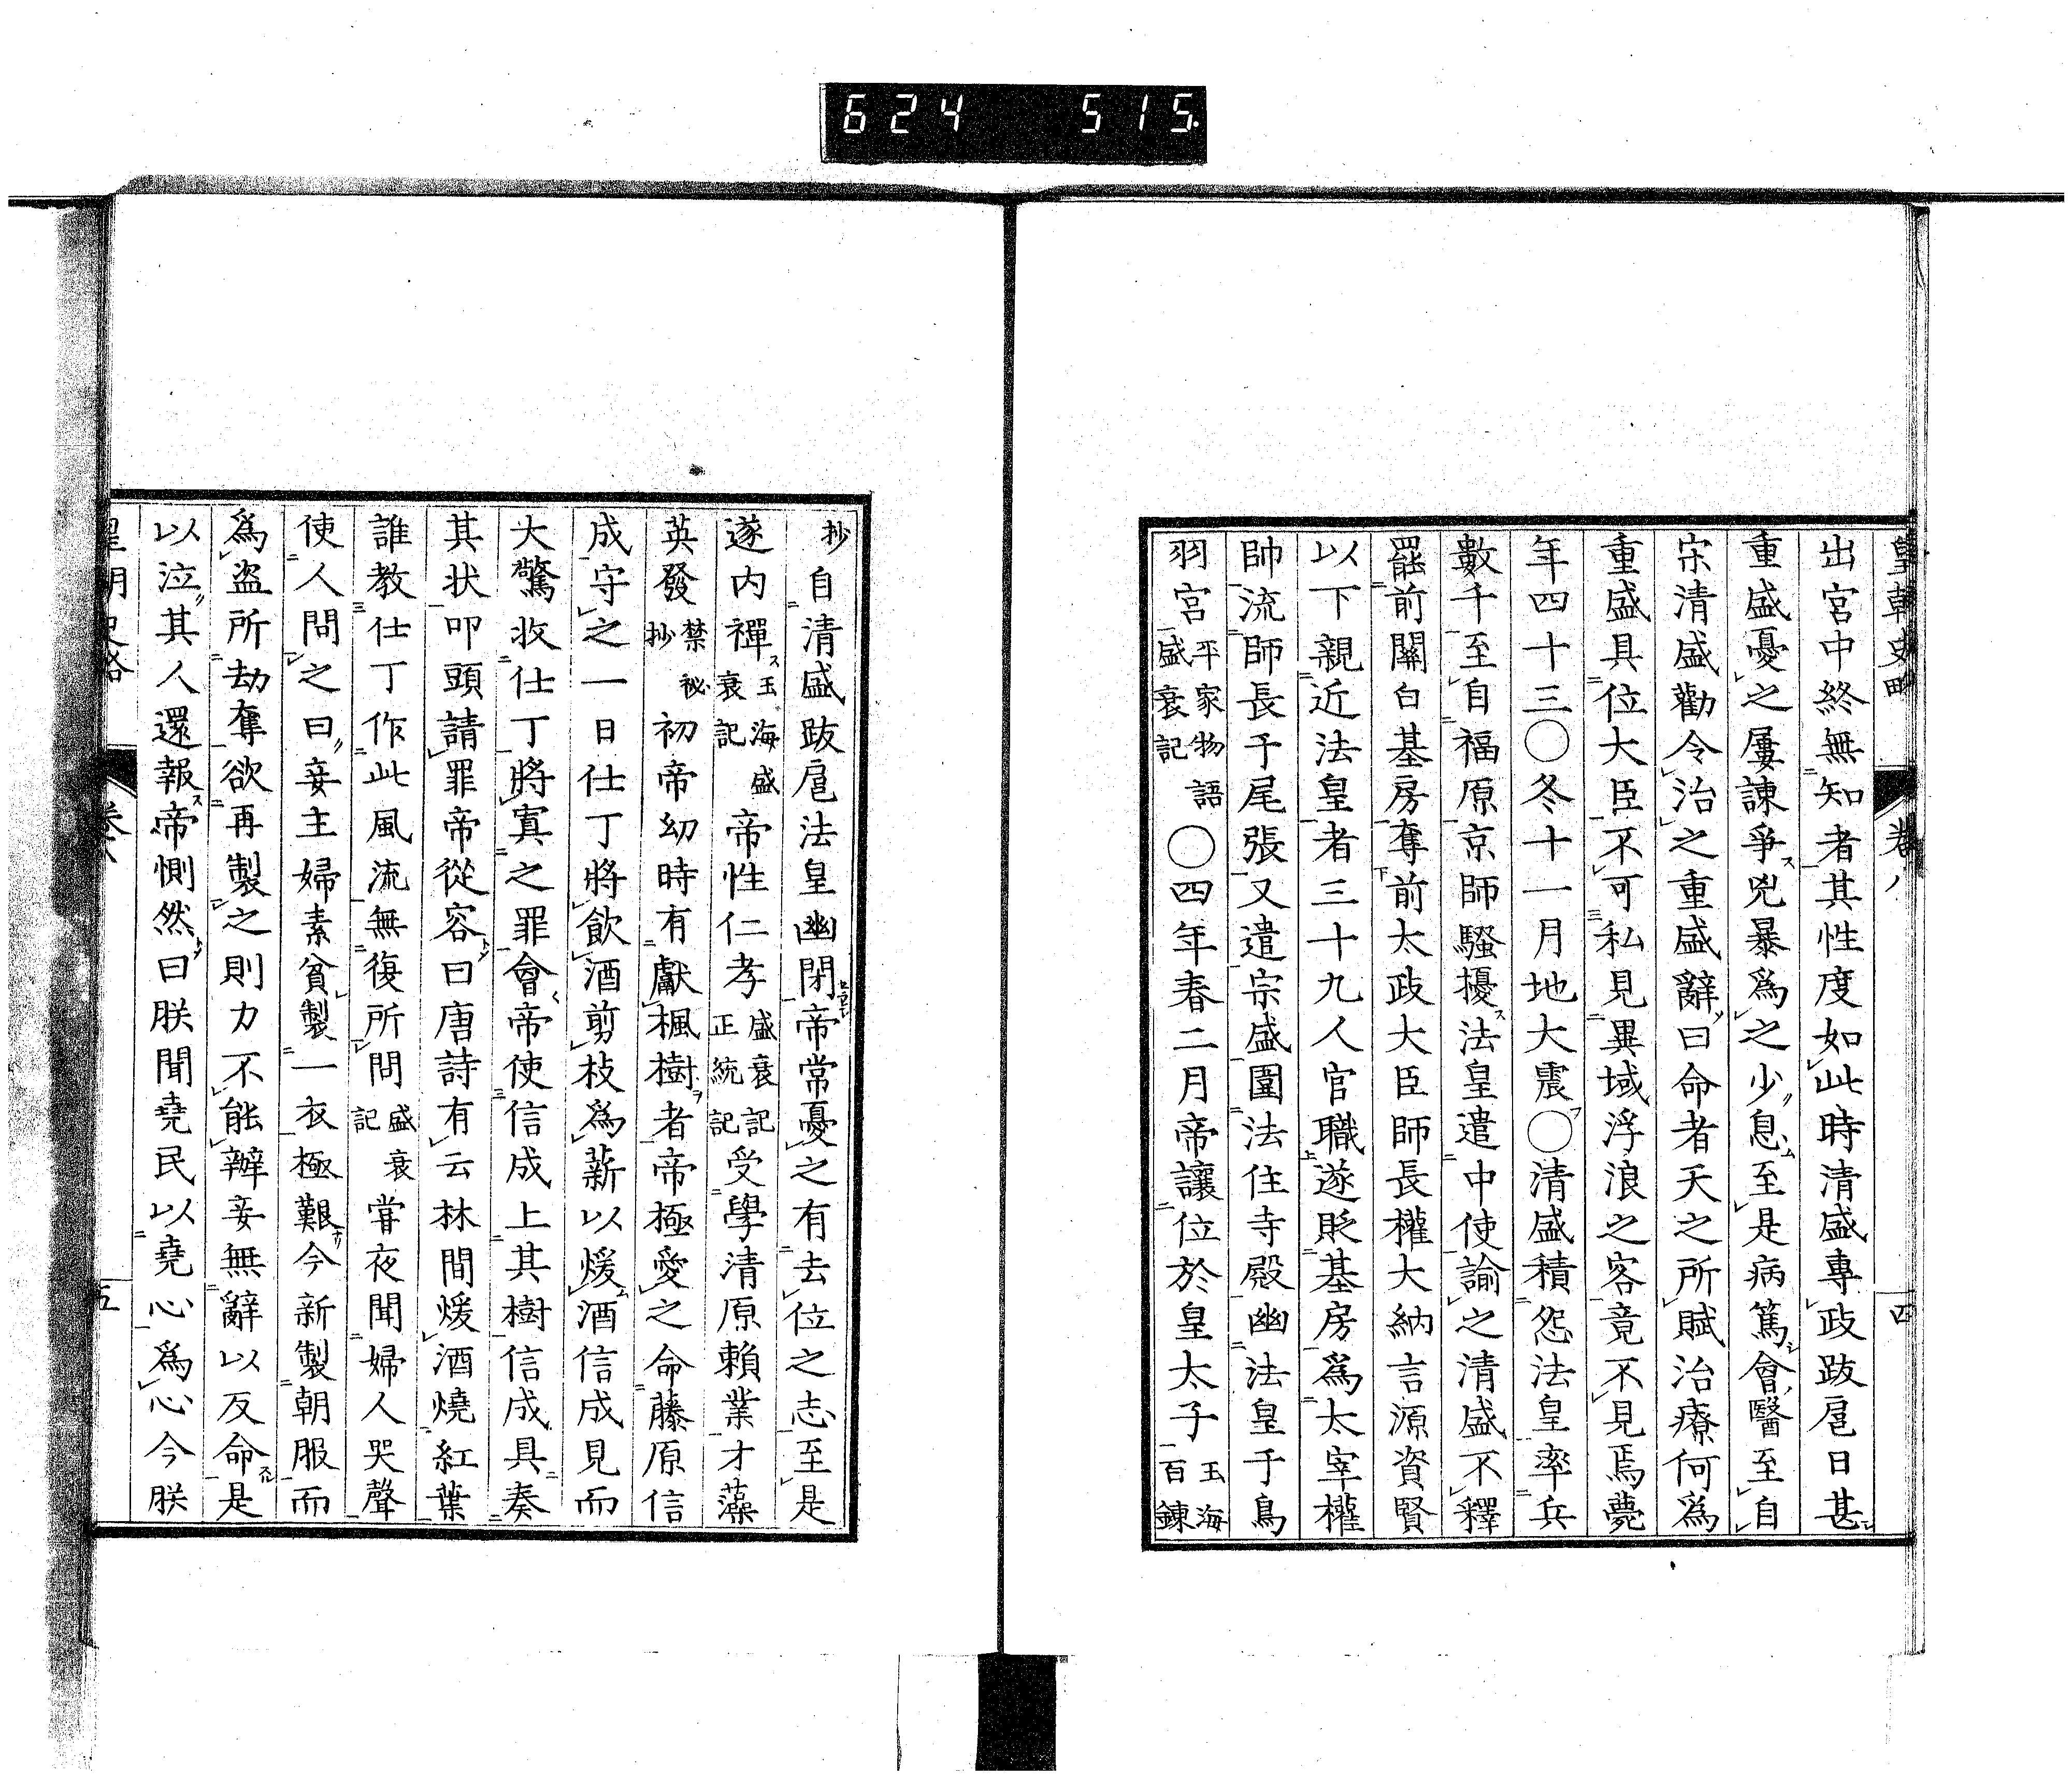 624 515.
皇朝史略 卷八 四
出宮中終無知者其性度如此時清盛專政跋扈日甚
重盛憂之屢諫爭兇暴爲之少息至是病篤會醫至自
宋清盛勸令治之重盛辭曰命者天之所賦治療何爲
重盛具位大臣不可私見異域浮浪之客竟不見焉薨
年四十三〇冬十一月地大震〇清盛積怨法皇率兵
數千至自福原京師騷擾法皇遣中使諭之清盛不釋
罷前關白基房奪前太政大臣師長權大納言源資賢
以下親近法皇者三十九人官職遂貶基房爲太宰權
帥流師長于尾張又遣宗盛圍法住寺殿幽法皇于鳥
羽宮平家物語盛衰記〇四年春二月帝讓位於皇太子玉海百鍊
抄自清盛跋扈法皇幽閉帝常憂之有去位之志至是
遂内禪玉海盛衰記帝性仁孝盛衰記正統記受學清原賴業才藻
英發禁祕抄初帝幼時有獻楓樹者帝極愛之命藤原信
成守之一日仕丁將飲酒剪枝爲薪以煖酒信成見而
大驚收仕丁將寘之罪會帝使信成上其樹信成具奏
其状叩頭請罪帝從容曰唐詩有云林間煖酒燒紅葉
誰教仕丁作此風流無復所問盛衰記甞夜聞婦人哭聲
使人問之曰妾主婦素貧製一衣極艱今新製朝服而
爲盜所劫奪欲再製之則力不能辦妾無辭以反命是
以泣其人還報帝惻然曰朕聞堯民以堯心爲心今朕
皇朝史略 卷八 五